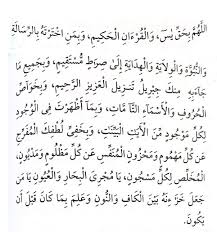 اللَّهُمَّ بِحَقِّ يٰسٓ، وَالْقُرْءَانِ الْحَكِيمِ، وَبِمَنِ اخْتَرْتَهُ بِالرِّسَالَةِ
وَالنُّبُوَّةِ وَالْوِلَايَةِ وَالْهِدَايَةِ إِلَىٰ صِرَاطٍ مُسْتَقِيمٍ، وَبِجَمِيعِ مَا
جَاءَ بِهِ مِنْكَ جِبْرِيلُ تَنْزِيلَ الْعَزِيزِ الرَّحِيمِ، وَبِخَوَاصِّ
الْحُرُوفِ وَالْأَسْمَاءِ التَّامَّاتِ، وَبِمَا أَظْهَرْتَ فِي الْوُجُودِ
لِكُلِّ مَوْجُودٍ مِنَ الْآيَاتِ الْبَيِّنَاتِ، وَبِخَفِيِّ لُطْفِكَ الْمُفَرِّجِ
عَنْ كُلِّ مَهْمُومٍ وَمَحْزُونٍ الْمُنَفِّسِ عَنْ كُلِّ مَظْلُومٍ وَمَدْيُونٍ،
الْمُخَلِّصِ لِكُلِّ مَسْجُونٍ، يَا مُجْرِيَ الْبِحَارِ وَالْعُيُونِ يَا مَنْ
جَعَلَ خَزَائِنَهُ بَيْنَ الْكَافِ وَالنُّونِ وَعَلِمَ بِمَا كَانَ قَبْلَ أَنْ
يَكُونَ.